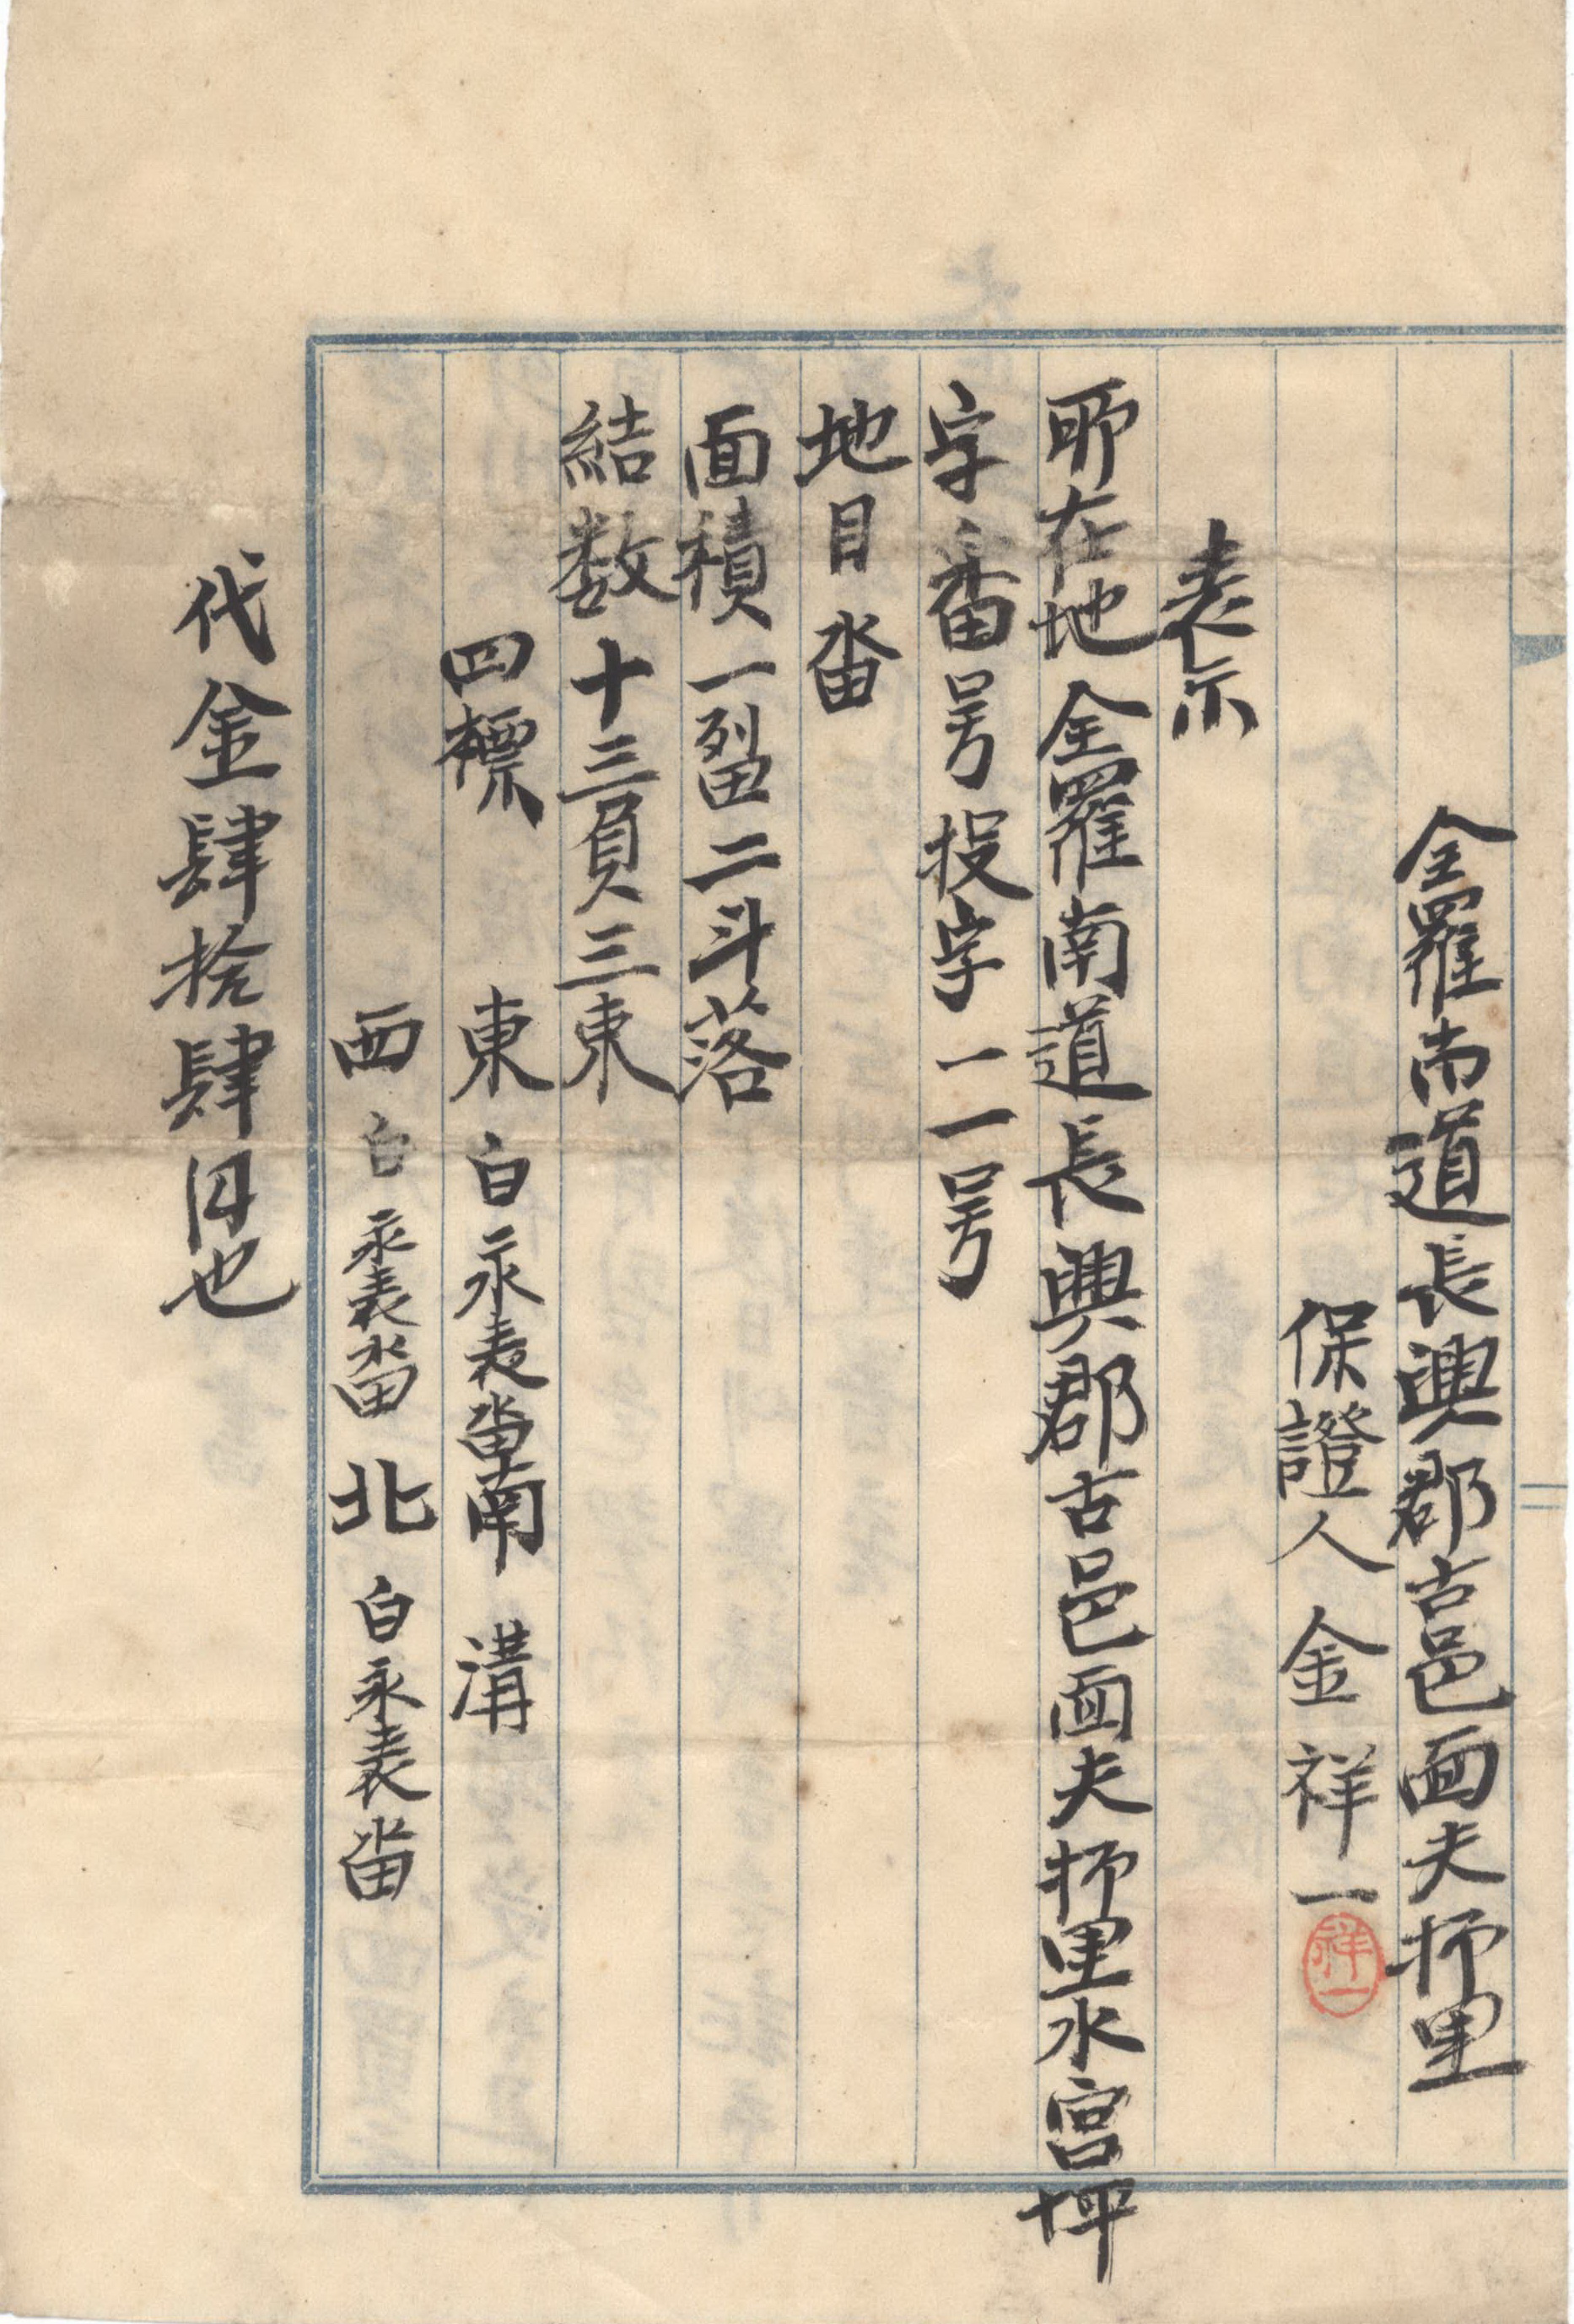 全羅南道長興郡古邑面夫抒里
保證人 金祥一
祥一
表示
所在地 全羅南道長興郡古邑面夫抒里水宮坪
字番号 投字一一号
地目 畓
面積 一畱二斗落
結数 十三負三束
四標 東 白永表畓 南 溝
西 白永表畓 北 白永表畓
代金肆拾肆円也